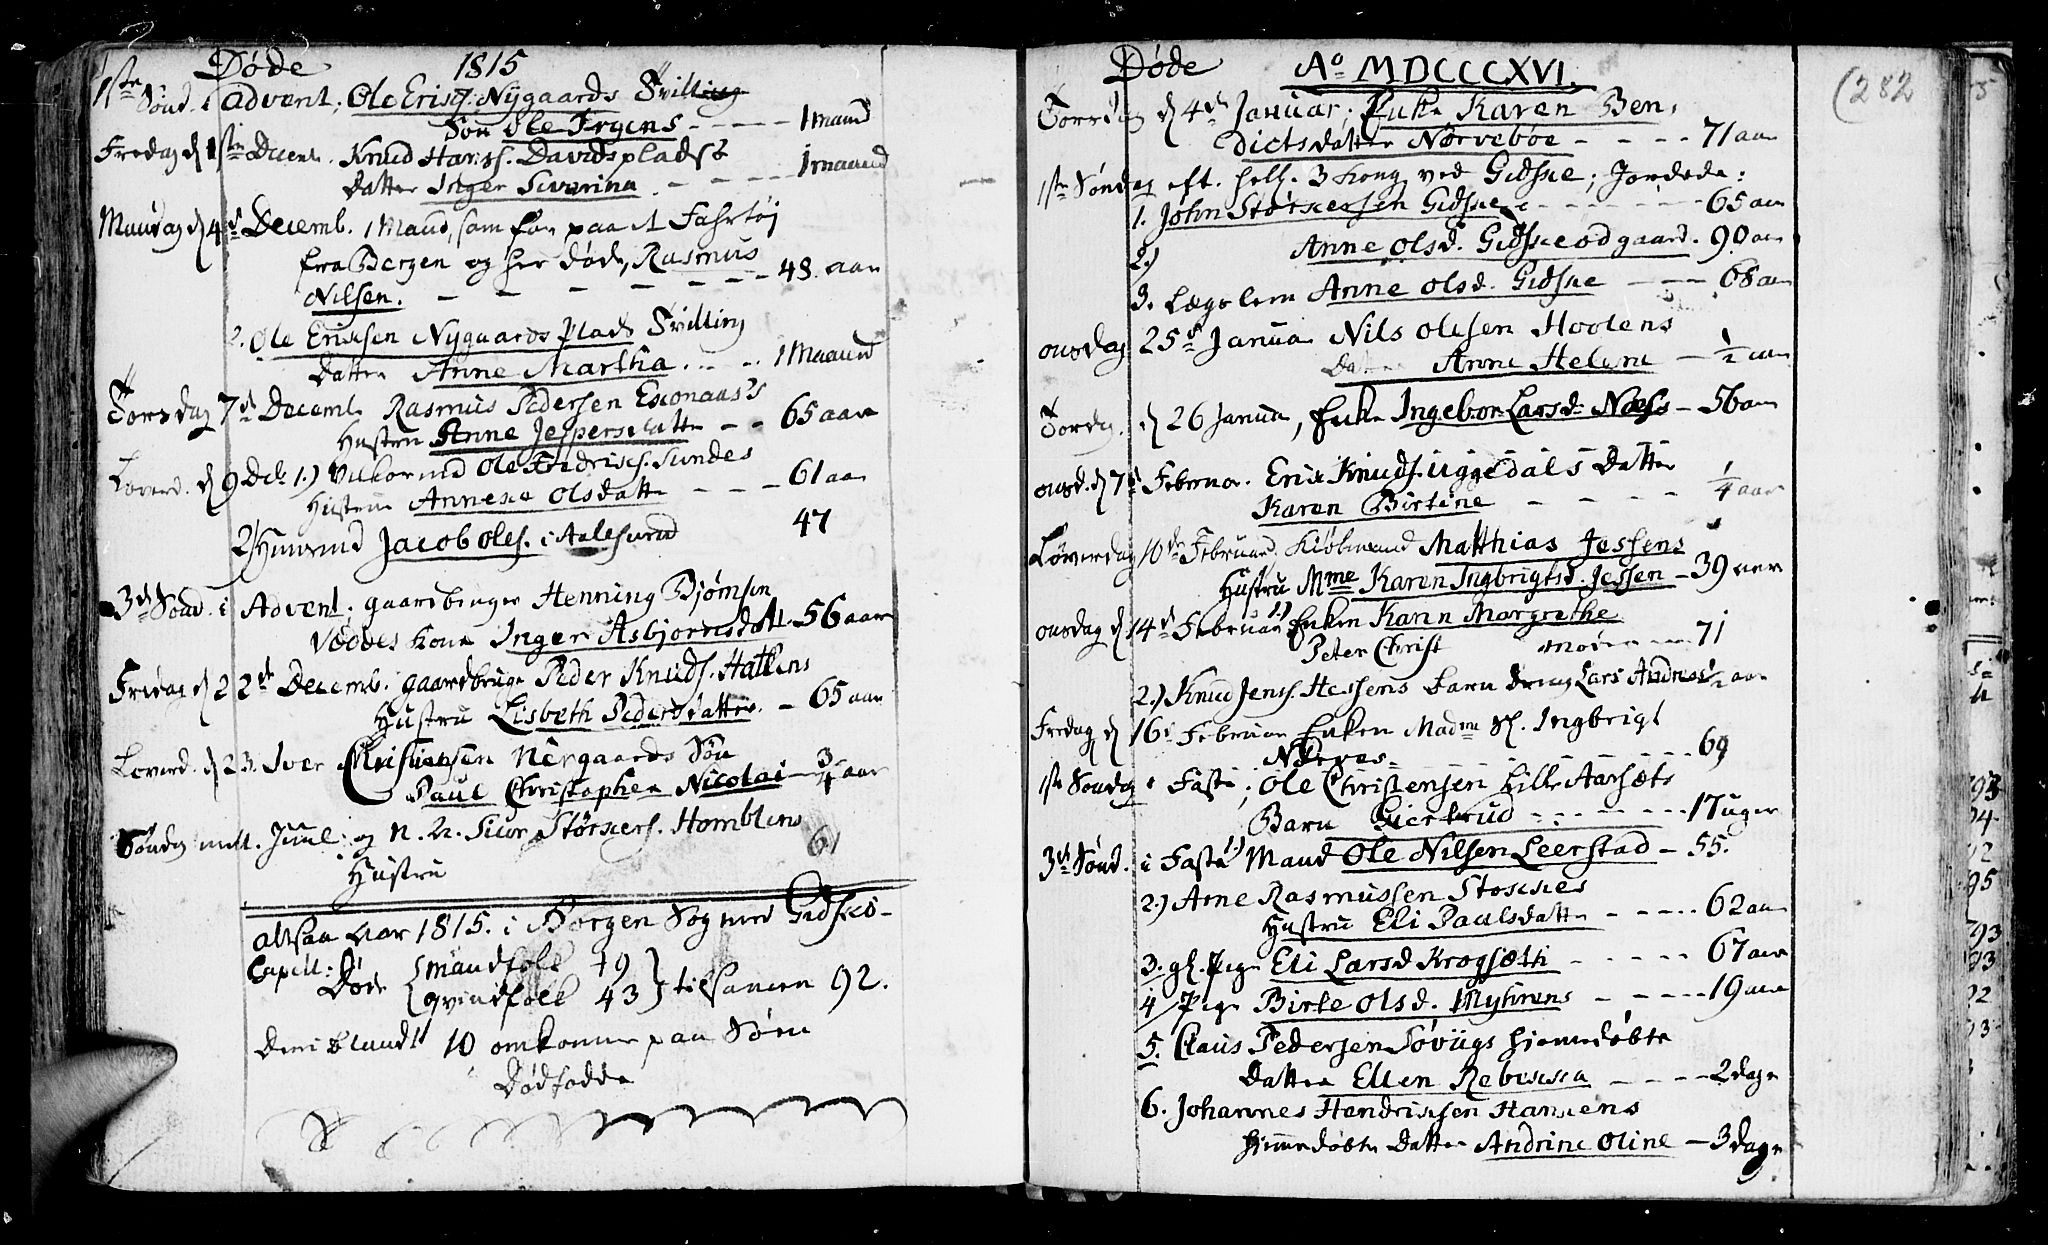 Døde 1815
1ste Sønd. i Advent; Ole Erichs. Nygaards Tvilling
Søn Ole Jrgens - - - - 1 maand
Fredag d 1ste Decemb. Knud Hanss. Davidsplads's
Datter Inger Severina - - - - 1 maaned
Mandag d 4de Decemb. 1 Mand, som før paa et Fahrtøj
fra Bergen og her døde, Rasmus
Nilsen. - - - - - - 48. aar
2. Ole Erichsen Nygaards Plads Tvilling
Datter Anne Martha . . . . 1 Maaned
Torsdag 7de Decemb Rasmus Pedersen Exonaas's
Hustru Anne Jespersdatter - - 65 aar
Løverd. d 9 Dcb 1.) Ole Fredrichs. Sundes
Hustrue Annexe Olsdatter - - - 61 aar
2/ Huusmd Jacob Oles. i Aalesund 47
3de Sønd. i Advent. gaardbruger Henning Bjørnsen
Veddes Kone Inger Asbjørnsdatt. 56 aar
Fredag d 22de Decemb. gaardbruger Peder Knuds. Hatlens
Hustru Lisbeth Pedersdatter. - 65 aar
Løverd. d 23. Iver Christensen Nergaards Søn
Paul Christopher Nicolai - 3/4 aar
Søndag mell. Juul: og N. A. Siur Størkers. Homblens
Hustru 61
altsaa Aar 1815. i Borgen Sogn med Gidskø-
Capell: Døde { mandfolk 49 } tilsamen 92.
{ qvindfolk 43 }
Deri blandt 10 omkomne paa Søen
Dødfødde
Døde Ao MDCCCXVI.
(282
Torsdag d 4de Januar; Enke Karen Ben-
dictsdatter Nørvebøe - - - - 71 aar
1ste Søndag eft. hell. 3 Kong. ved Gidske; Jordede:
1. John Størkersen Gidske - - - - - 65 aar
2.) Anne Olsd. Gidskeodgaard. 90 aar
3. Lægslem Anne Olsd. Gidske - - - 68 aar
Onsdag 25de Januar Nils Olesen Hoolens
Datter Anne Helene - 1/2 aar
Torsdag. d 26 Januar, Enke Ingebor Larsd. Næss - 56 aar
Onsd. d 7de Februar. Erik Knuds. Uggedals Datter
Karen Birtine - - - - 1/4 aar
Løverdag 10de Februar Kiøbmand Matthias Jessens
Hustru Mme Karen Ingbrigtsd. Jessen - 39 aar
Onsdag d 14de Februar 1.) Enken Karen Margrethe
Peter Christ Møren - 71
2.) Knud Jenss. Hessens barn dreng Lars Andreas 1/2 aar
Fredag d 16de Februar Enken Madme Sl. Ingbrigt
Nøeros - - - - - 69
1ste Søndag i Faste; Ole Christensen Lille Aarsæts
Barn Giertrud - - - - - 17 uger
3de Sønd. i Faste 1.) Mand Ole Nilsen Leerstad - 55.
2.) Arne Rasmussen Stokkes
Hustru Eli Paulsdatter - - - - 62 aar
3. gl. Pige Eli Larsd Krogsæth - - - - - 67 aar
4/ Pige Birte Olsd. Myhrens - - - - 19 aar
5. Claus Pedersen Søviigs hiemedøbte
Datter Ellen Rebekka - - - - 2 dage
6. Johannes Hendrichsen Hansens
hiemedøbte Datter Andrine Oline - 3 dage